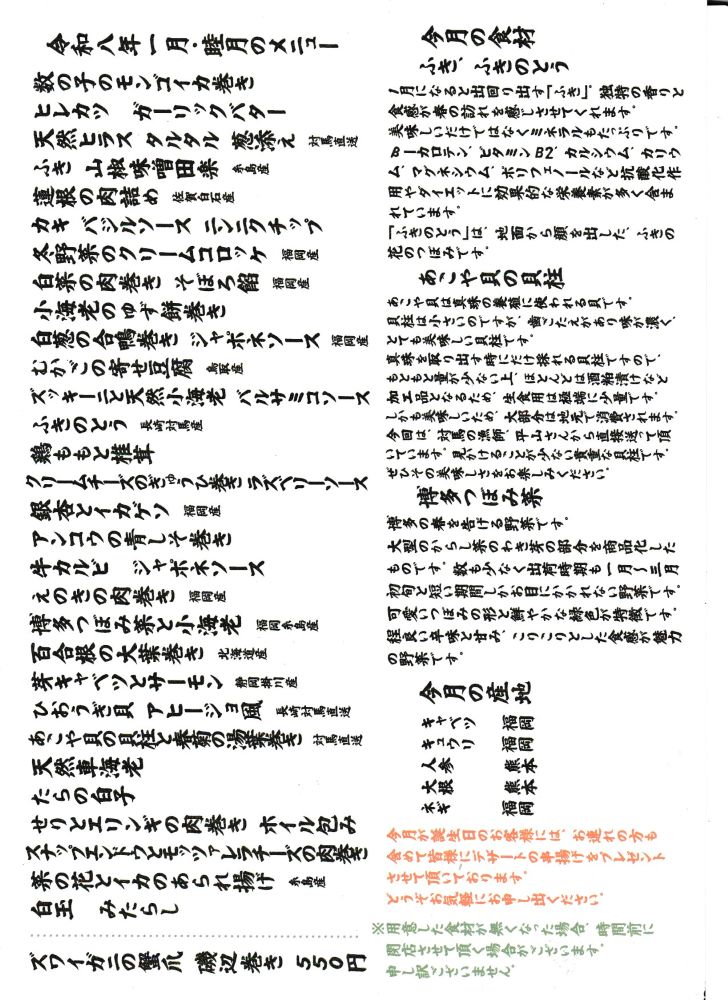 令和八年一月・睦月のメニュー
数の子のモンゴイカ巻き
ヒレカツ　ガーリックバター
天然ヒラス　タルタル　葱添え　対馬直送
ふき　山椒味噌田楽　糸島産
蓮根の肉詰め　佐賀白石産
カキ　バジルソース　ニンニクチップ
冬野菜のクリームコロッケ　福岡産
白菜の肉巻き　そぼろ餡　福岡産
小海老のゆず餅巻き
白葱の合鴨巻き　ジャポネソース　福岡産
むかごの寄せ豆腐　鳥取産
ズッキーニと天然小海老　バルサミコソース
ふきのとう　長崎対馬産
鶏ももと椎茸
クリームチーズのぎゅうひ巻き　ラズベリーソース
銀杏とイカゲソ　福岡産
アンコウの青しそ巻き
牛カルビ　ジャポネソース
えのきの肉巻き　福岡産
博多つぼみ菜と小海老　福岡糸島産
百合根の大葉巻き　北海道産
芽キャベツとサーモン　静岡掛川産
ひおうぎ貝　アヒージョ風　長崎対馬直送
あこや貝の貝柱と春菊の湯葉巻き　対馬直送
天然車海老
たらの白子
せりとエリンギの肉巻き　ホイル包み
スナップエンドウとモッツァレラチーズの肉巻き
菜の花とイカのあられ揚げ　糸島産
白玉　みたらし
ズワイガニの蟹爪　磯辺巻き　550円
今月の食材
ふき、ふきのとう
1月になると出回り出す「ふき」。独特の香りと
食感が春の訪れを感じさせてくれます。
美味しいだけではなくミネラルもたっぷりです。
βーカロテン、ビタミンB2、カルシウム、カリウ
ム、マグネシウム、ポリフェノールなど抗酸化作
用やダイエットに効果的な栄養素が多く含ま
れています。
「ふきのとう」は、地面から顔を出した、ふきの
花のつぼみです。
あこや貝の貝柱
あこや貝は真珠の養殖に使われる貝です。
貝柱は小さいのですが、歯ごたえがあり味が濃く、
とても美味しい貝柱です。
真珠を取り出す時にだけ採れる貝柱ですので、
もともと量が少ない上、ほとんどは酒粕漬けなど
加工品となるため、生食用は極端に少量です。
しかも美味しいため、大部分は地元で消費されます。
今回は、対馬の漁師、平山さんから直接送って頂
いています。見かけることが少ない貴重な貝柱です。
ぜひその美味しさをお楽しみください。
博多つぼみ菜
博多の春を告げる野菜です。
大型のからし菜のわき芽の部分を商品化した
ものです。数も少なく出荷時期も一月～三月
初旬と短い期間しかお目にかかれない野菜です。
可愛いつぼみの形と鮮やかな緑色が特徴です。
程良い辛味と甘み、こりこりとした食感が魅力
の野菜です。
今月の産地
キャベツ　福岡
キュウリ　福岡
人参　熊本
大根　熊本
ネギ　福岡
今月が誕生日のお客様には、お連れの方も
含めて皆様にデザートの串揚げをプレゼント
させて頂いております。
どうぞお気軽にお申し出ください。
※用意した食材が無くなった場合、時間前に
閉店させて頂く場合がございます。
申し訳ございません。